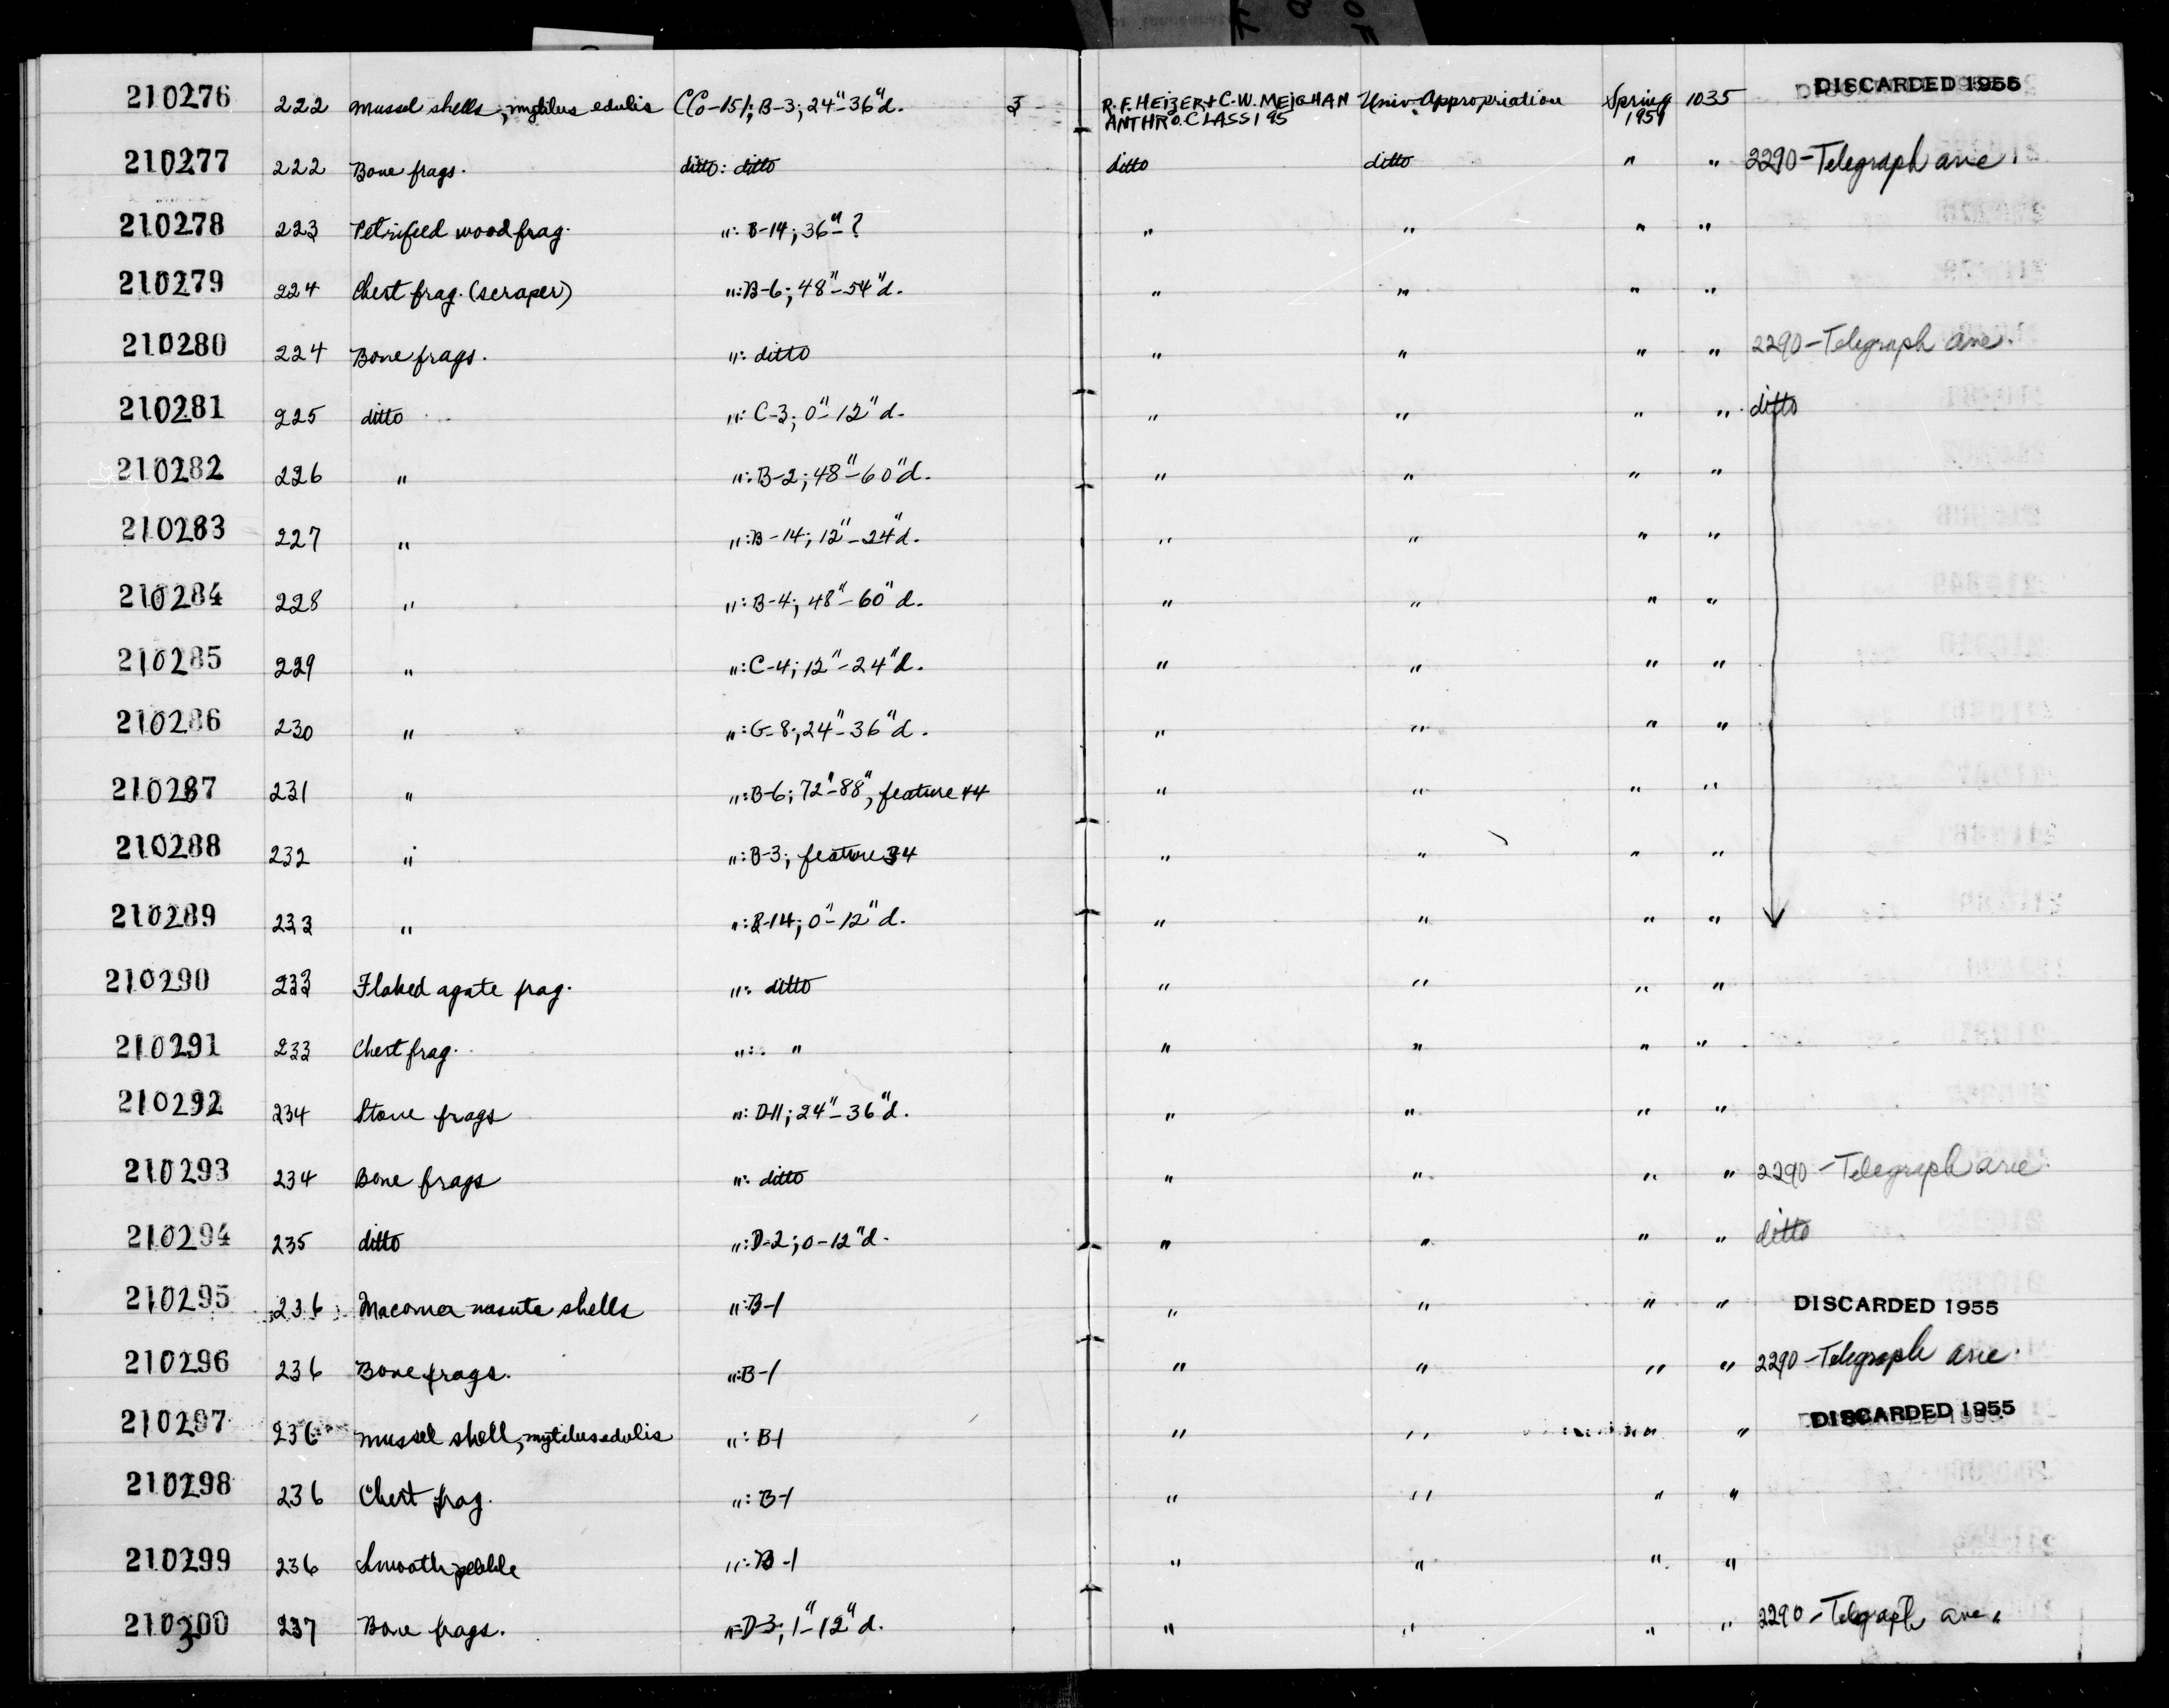 210276 222 Mussel shells, mytilus edulis CCo-151; B-3; 24"-36"d. 3 R.F. HEIZER + C.W. MEIGHAN Univ. Appropriation Spring 1035 DISCARDED 1955
ANTHRO. CLASS 195 1951
210277 222 Bone frags. ditto: ditto ditto ditto " " 2290-Telegraph ave.
210278 223 Petrified wood frag. ": B-14; 36"-? " " " "
210279 224 Chert frag. (scraper) ": B-6; 48"-54"d. " " " "
210280 224 Bone frags. ": ditto " " " " 2290-Telegraph Ave.
210281 225 ditto ": C-3; 0"-12"d. " " " " ditto
210282 226 " ": B-2; 48"-60"d. " " " "
210283 227 " ": B-14; 12"-24"d. " " " "
210284 228 " ": B-4; 48"-60"d. " " " "
210285 229 " ": C-4; 12"-24"d. " " " "
210286 230 " ": G-8; 24"-36"d. " " " "
210287 231 " ": B-6; 72"-88", feature 44 " " " "
210288 232 " ": B-3; feature 34 " " " "
210289 233 " ": B-14; 0"-12"d. " " " "
210290 233 Flaked agate frag. ": ditto " " " "
210291 233 Chert frag. ": " " " " "
210292 234 Stone frags ": D-11; 24"-36"d. " " " "
210293 234 Bone frags ": ditto " " " " 2290-Telegraph ave.
210294 235 ditto ": D-2; 0-12"d. " " " " ditto
210295 236 Macoma nasuta shells ": B-1 " " " " DISCARDED 1955
210296 236 Bone frags. ": B-1 " " " " 2290-Telegraph ave.
210297 236 Mussel shell, mytilus edulis ": B-1 " " " " DISCARDED 1955
210298 236 Chert frag. ": B-1 " " " "
210299 236 Smooth pebble ": B-1 " " " "
210300 237 Bone frags. ": D-3; 1"-12"d. " " " " 2290-Telegraph ave.